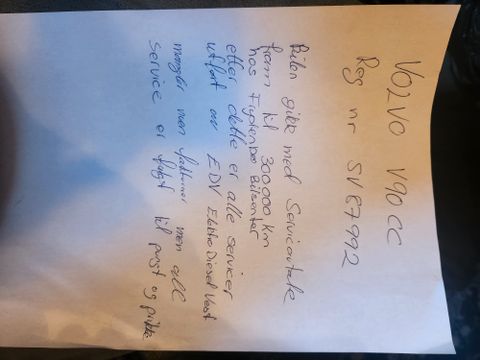 VOLVO V90 CC
Reg nr SV87992
Bilen gikk med Serviceavtale
fram til 300000 km
hos Bilsenter
etter dette er alle servicer
utført av EDV Elektro Diesel Vest
mangler noen fakturaer men all
service er fulgt til punkt og prikke